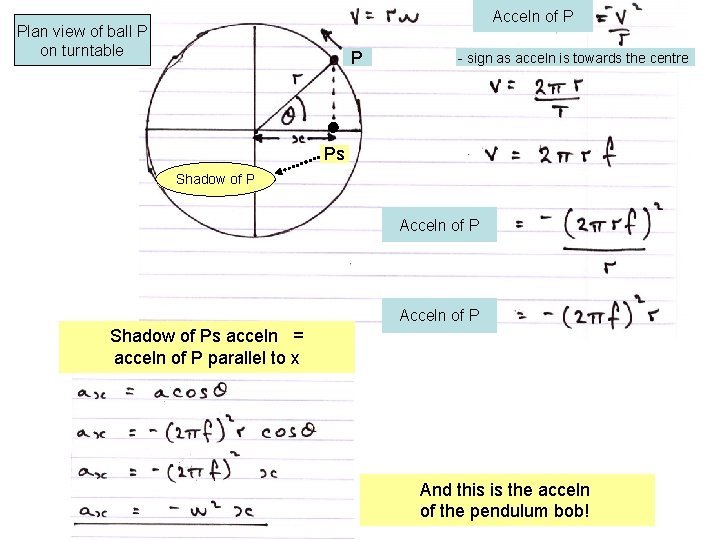 Plan view of ball P
on turntable
v = rw
Acceln of P = - v²/r
P
- sign as acceln is towards the centre
r
θ
v = 2πr/T
x
Ps
v = 2πrf
Shadow of P
Acceln of P = - (2πrf)²/r
Acceln of P = -(2πf)² r
Shadow of Ps acceln =
acceln of P parallel to x
ax = a cos θ
ax = -(2πf)² r cos θ
ax = -(2πf)² x
ax = - w² x
And this is the acceln
of the pendulum bob!